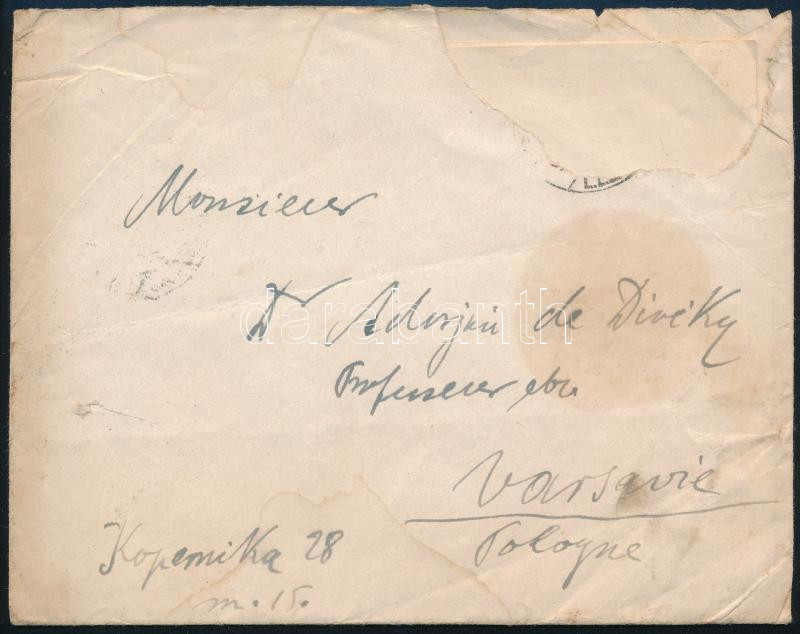 Monsieur
Dr Adorján de Divéky
Professeur etc.
Varsavie
Pologne
Kopernika 28
m. 15.
darabanth